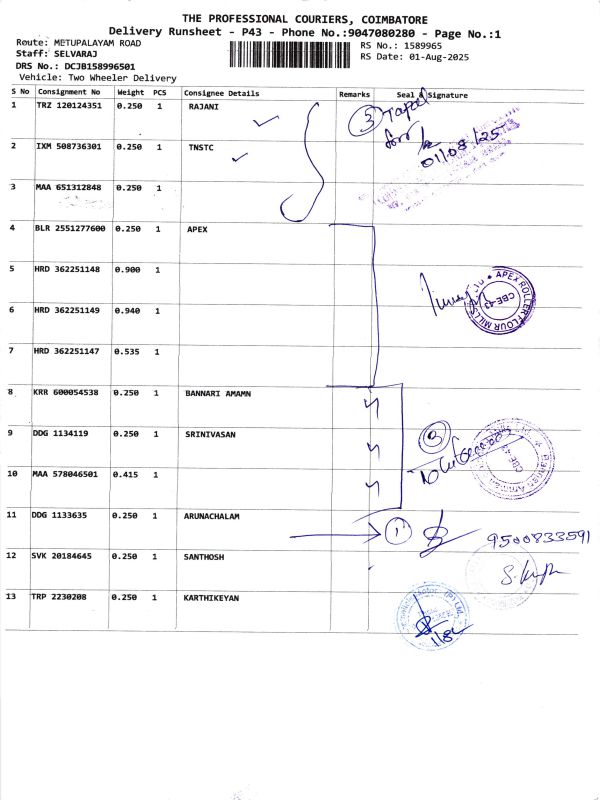 THE PROFESSIONAL COURIERS, COIMBATORE
Delivery Runsheet - P43 - Phone No.:9047080280 - Page No.:1
Route: METUPALAYAM ROAD
Staff: SELVARAJ
DRS No.: DCJB158996501
Vehicle: Two Wheeler Delivery
RS No.: 1589965
RS Date: 01-Aug-2025
S No Consignment No Weight PCS Consignee Details Remarks Seal & Signature
1 TRZ 120124351 0.250 1 RAJANI
3 Tapal
for
01/08/25
2 IXM 508736301 0.250 1 TNSTC
3 MAA 651312848 0.250 1
4 BLR 2551277600 0.250 1 APEX
5 HRD 362251148 0.900 1
APEX ROLLER FLOUR MILLS
CBE-43
6 HRD 362251149 0.940 1
7 HRD 362251147 0.535 1
8 KRR 600054538 0.250 1 BANNARI AMAMN
9 DDG 1134119 0.250 1 SRINIVASAN
3
Bannari Amman
CBE-43
10 MAA 578046501 0.415 1
11 DDG 1133635 0.250 1 ARUNACHALAM
1
9500833591
12 SVK 20184645 0.250 1 SANTHOSH
13 TRP 2230208 0.250 1 KARTHIKEYAN
Motor (P) Ltd.
1/8/